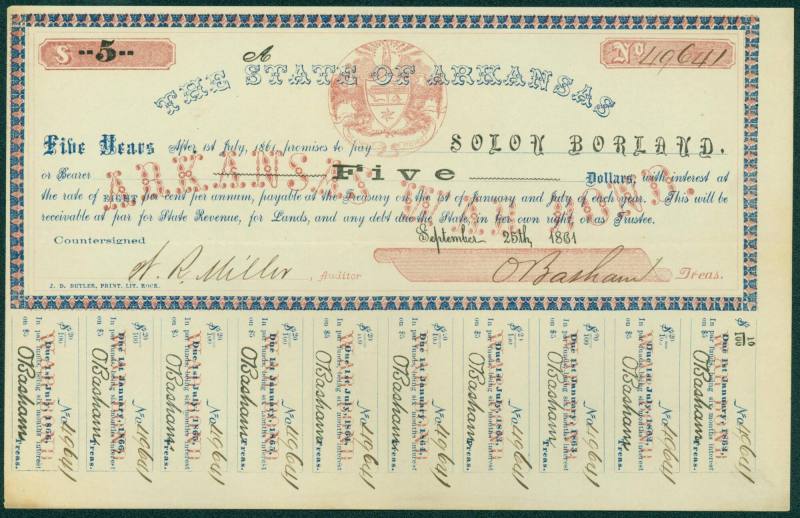 $ --5--
No 49641
A
THE STATE OF ARKANSAS
Five Years After 1st July, 1861, promises to pay SOLON BORLAND.
or Bearer Five Dollars, with interest at
the rate of EIGHT per cent per annum, payable at the Treasury on the 1st of January and July of each year. This will be
receivable at par for State Revenue, for Lands, and any debt due the State, in her own right, or as Trustee.
ARKANSAS WAR BOND.
Countersigned September 25th, 1861
W. R. Miller, Auditor
O Basham Treas.
J. D. BUTLER, PRINT. LIT. ROCK.
$ 20/100 No 49641
Due 1st July, 1866,
In par funds, being six months interest
on $5 O Basham Treas.
$ 20/100 No 49641
Due 1st January, 1866,
In par funds, being six months interest
on $5 O Basham Treas.
$ 20/100 No 49641
Due 1st July, 1865,
In par funds, being six months interest
on $5 O Basham Treas.
$ 20/100 No 49641
Due 1st January, 1865,
In par funds, being six months interest
on $5 O Basham Treas.
$ 20/100 No 49641
Due 1st July, 1864,
In par funds, being six months interest
on $5 O Basham Treas.
$ 20/100 No 49641
Due 1st January, 1864,
In par funds, being six months interest
on $5 O Basham Treas.
$ 20/100 No 49641
Due 1st July, 1863,
In par funds, being six months interest
on $5 O Basham Treas.
$ 20/100 No 49641
Due 1st January, 1863,
In par funds, being six months interest
on $5 O Basham Treas.
$ 20/100 No 49641
Due 1st July, 1862,
In par funds, being six months interest
on $5 O Basham Treas.
$ 10/100 No 49641
Due 1st January, 1862,
In par funds, being six months interest
on $5 O Basham Treas.